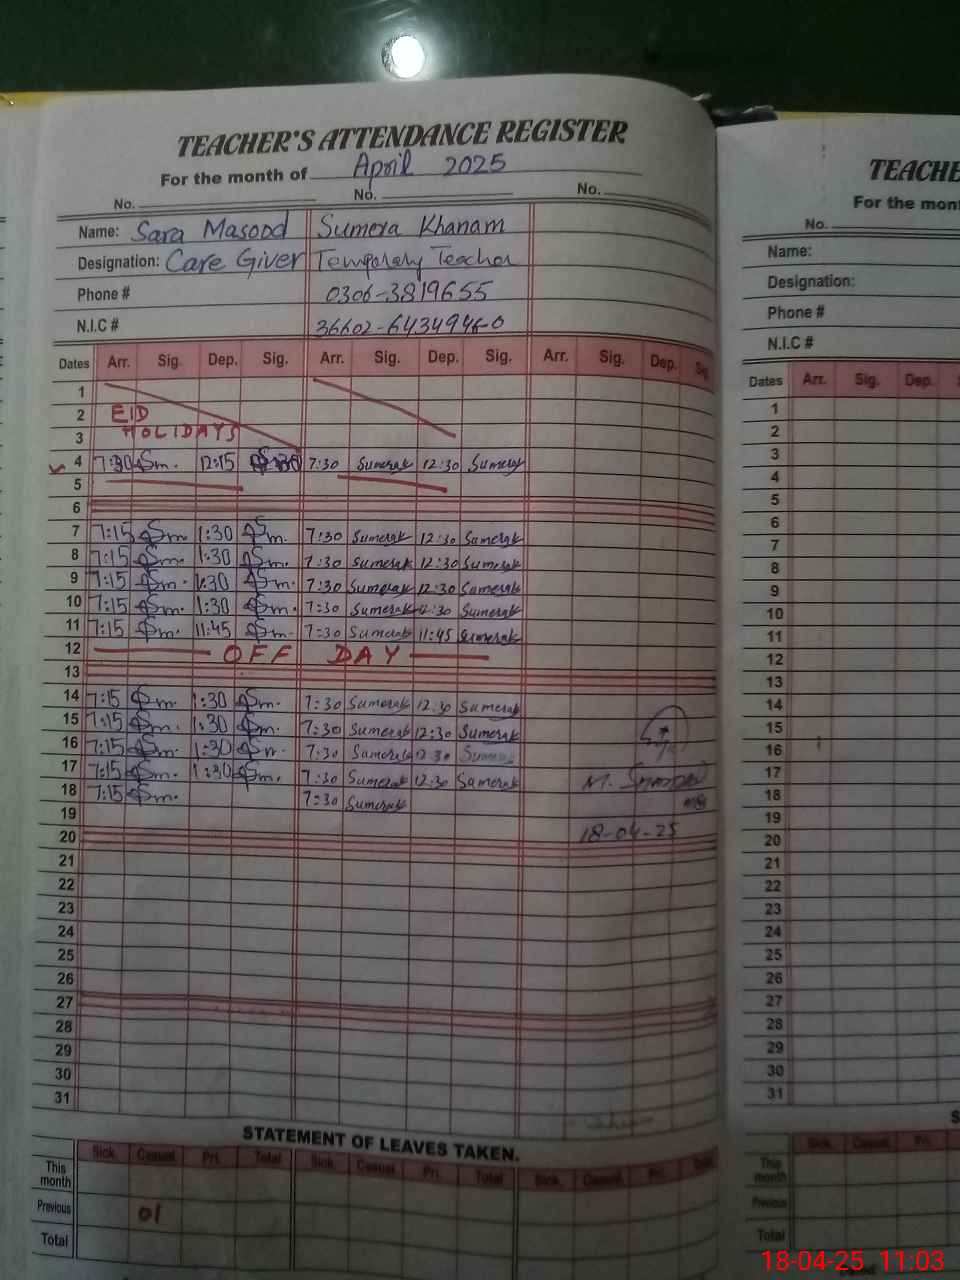 TEACHER'S ATTENDANCE REGISTER
For the month of April 2025
No. No. No.
Name: Sara Masood Sumera Khanam
Designation: Care Giver Temporary Teacher
Phone # 0306-3819655
N.I.C # 36602-6434946-0
Dates Arr. Sig. Dep. Sig. Arr. Sig. Dep. Sig. Arr. Sig. Dep. Sig
1
2 EID
3 HOLIDAYS
4 7:30 Sm. 12:15 7:30 Sumerak 12:30 Sumerak
5
6
7 7:15 Sm 1:30 Sm. 7:30 Sumerak 12:30 Sumerak
8 7:15 Sm. 1:30 Sm. 7:30 Sumerak 12:30 Sumerak
9 7:15 Sm. 1:30 Sm. 7:30 Sumerak 12:30 Sumerak
10 7:15 Sm. 1:30 Sm. 7:30 Sumerak 12:30 Sumerak
11 7:15 Sm. 11:45 Sm. 7:30 Sumerak 11:45 Sumerak
12 OFF DAY
13
14 7:15 Sm. 1:30 Sm. 7:30 Sumerak 12:30 Sumerak
15 7:15 Sm. 1:30 Sm. 7:30 Sumerak 12:30 Sumerak
16 7:15 Sm. 1:30 Sm. 7:30 Sumerak 12:30
17 7:15 Sm. 1:30 Sm. 7:30 Sumerak 12:30 Sumerak M.
18 7:15 Sm. 7:30 Sumerak
19
20 18-04-25
21
22
23
24
25
26
27
28
29
30
31
STATEMENT OF LEAVES TAKEN.
Sick. Casual. Pri. Total Sick. Casual. Pri. Total Sick. Casual. Pri. Total
This month
Previous 01
Total
TEACHE
For the mon
No.
Name:
Designation:
Phone #
N.I.C #
Dates Arr. Sig. Dep.
1
2
3
4
5
6
7
8
9
10
11
12
13
14
15
16
17
18
19
20
21
22
23
24
25
26
27
28
29
30
31
S
Sick. Casual. Pri.
This month
Previous
Total
18-04-25 11:03